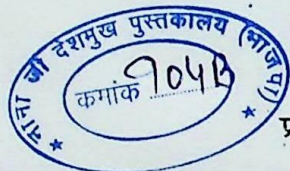 नाना जी देशमुख पुस्तकालय (भाजपा)
कमांक 904B
प्र